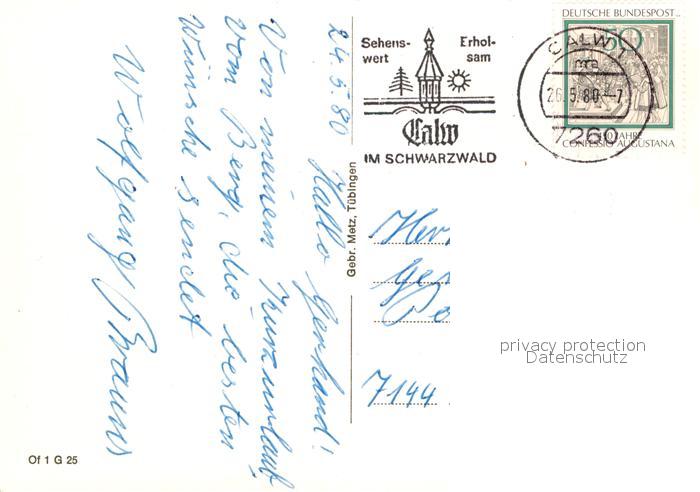 24.5.80
Hallo Gerhard!
Von meinem Kurzurlaub
vom Berg, die besten
Wünsche sendet
Wolfgang Brauns
Sehens-
wert
Erhol-
sam
Calw
IM SCHWARZWALD
DEUTSCHE BUNDESPOST
50
CALW 1
mca
26.5.80-7
7260
JAHRE
CONFESSIO AUGUSTANA
Gebr. Metz, Tübingen
Her
Ger
7144
privacy protection
Datenschutz
Of 1 G 25